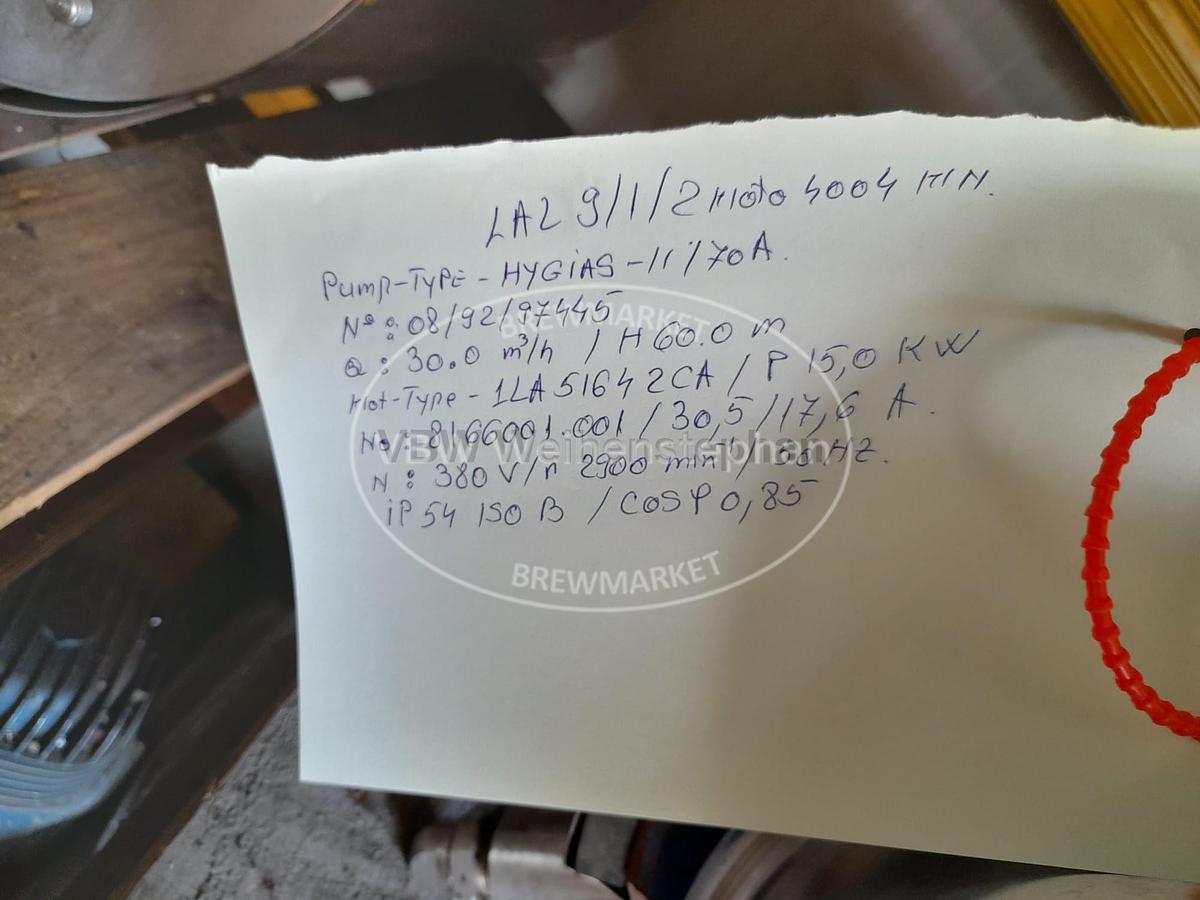 LAL 9/1/2 Moto 4004 MIN.
Pump-Type - HYGIAS - II/70 A.
Nº: 08/92/97445
Q: 30.0 m³/h / H 60.0 m
Mot-Type - 1LA 5164 2CA / P 15,0 KW
No: 8166001.001 / 30,5/17,6 A.
N: 380 V/n 2900 min⁻¹ / 50 HZ.
iP 54 ISO B / COSφ 0,85
BREWMARKET
VBW Weihenstephan
BREWMARKET